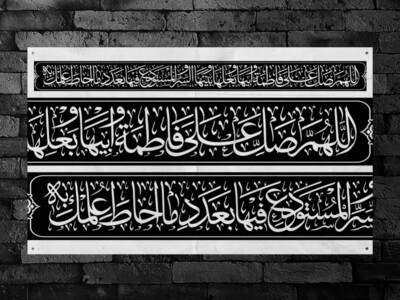 اللهم صل على فاطمة وابيها وبعلها وبنيها والسر المستودع فيها بعدد ما احاط به علمك
اللهم صل على فاطمة وابيها وبعلها
سر المستودع فيها بعدد ما احاط به علمك